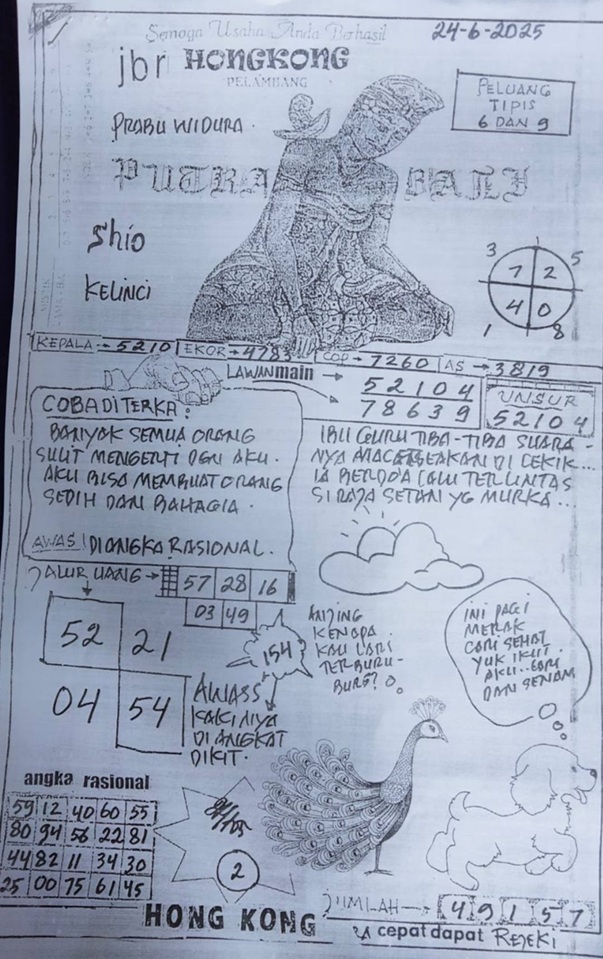 Semoga Usaha Anda Berhasil
24-6-2025
jbr HONGKONG
PELAMBANG
PELUANG
TIPIS
6 DAN 9
PRABU WIDURA.
PUTRA BALI
Shio
KELINCI
3 5
7 2
4 0
1 8
KEPALA→5210 EKOR→4783 COP→7260 AS→3819
LAWANmain → 52104
78639
UNSUR
52104
COBA DITERKA:
BANYAK SEMUA ORANG
SULIT MENGERTI DGN AKU.
AKU BISA MEMBUAT ORANG
SEDIH DAN BAHAGIA.
AWAS! DI ANGKA RASIONAL.
IBU GURU TIBA-TIBA SUARA-
NYA SEAKAN DI CEKIK...
IA BERDO'A LALU TERLINTAS
SI RAJA SETAN YG MURKA...
JALUR UANG→ 57 28 16
03 49
52 21
04 54
154
AWASS
KAKI NYA
DI ANGKAT
DIKIT.
ANJING
KENAPA
KAU LARI
TERBURU-
BURU?
INI PAGI
MERAK
LARI SEHAT
YUK IKUT
AKU..LARI
DAN SENAM
angka rasional
59 12 40 60 55
80 94 56 22 81
44 82 11 34 30
25 00 75 61 45
2
HONG KONG
JUMLAH→ 4 9 1 5 7
cepat dapat REJEKI